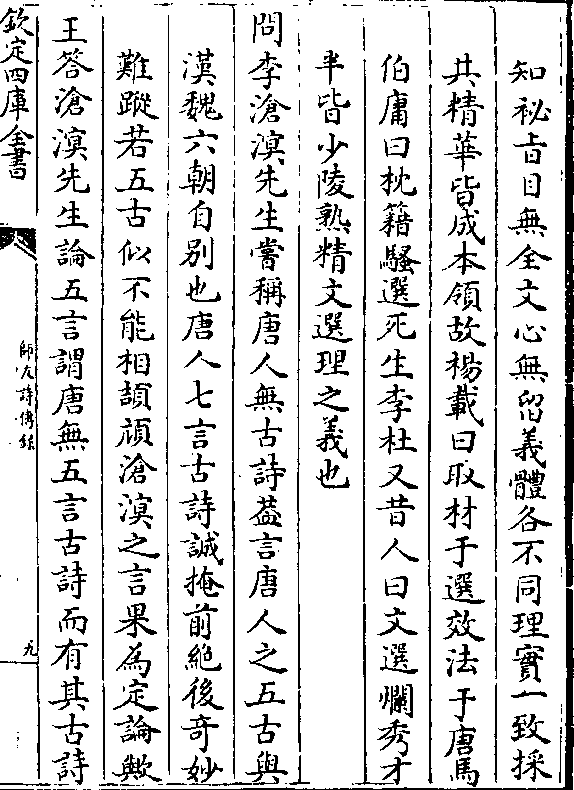 知祕旨目無全文心無留義體各不同理實一致採
其精華皆成本領故楊載曰取材于選效法于唐馬
伯庸曰枕籍騷選死生李杜又昔人曰文選爛秀才
半皆少陵熟精文選理之義也
問李滄溟先生嘗稱唐人無古詩葢言唐人之五古與
漢魏六朝自别也唐人七言古詩誠掩前絶後奇妙
難蹤若五古似不能相頡頏滄溟之言果為定論歟
王答滄溟先生論五言謂唐無五言古詩而有其古詩
欽定四庫全書
師友詩傳録
九